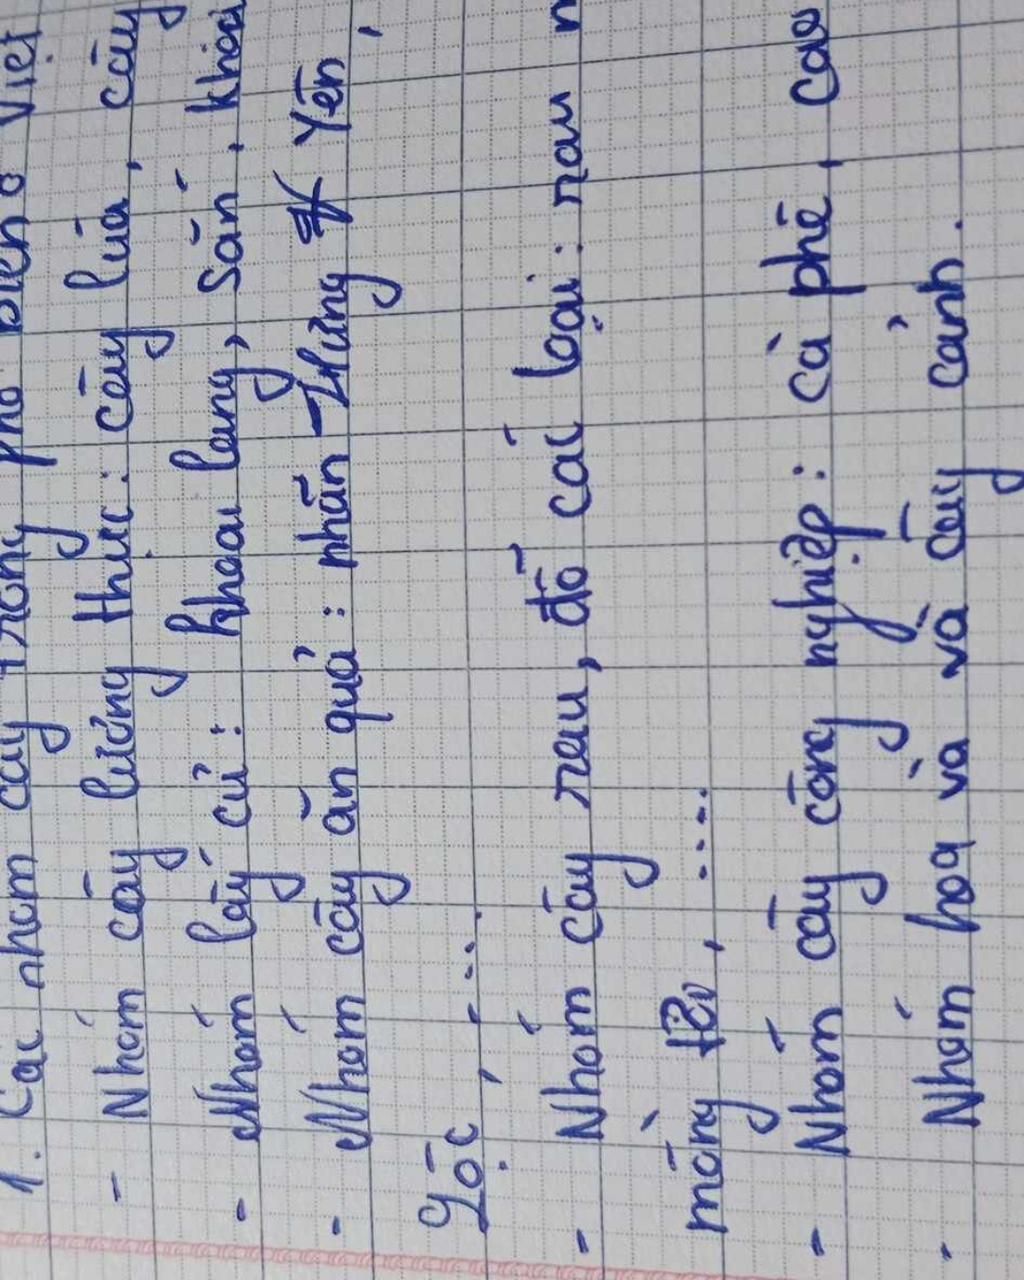 1. Các nhóm cây trồng phổ biến ở Việt
- Nhóm cây lương thực: cây lúa, cây
- Nhóm lấy củ: khoai lang, sắn, khoai
- Nhóm cây ăn quả: nhãn - Hưng Yên,
Gốc, ....
- Nhóm cây rau, đỗ các loại: rau
mồng tơi, ....
- Nhóm cây công nghiệp: cà phê, cao
- Nhóm hoa và và cây cảnh.